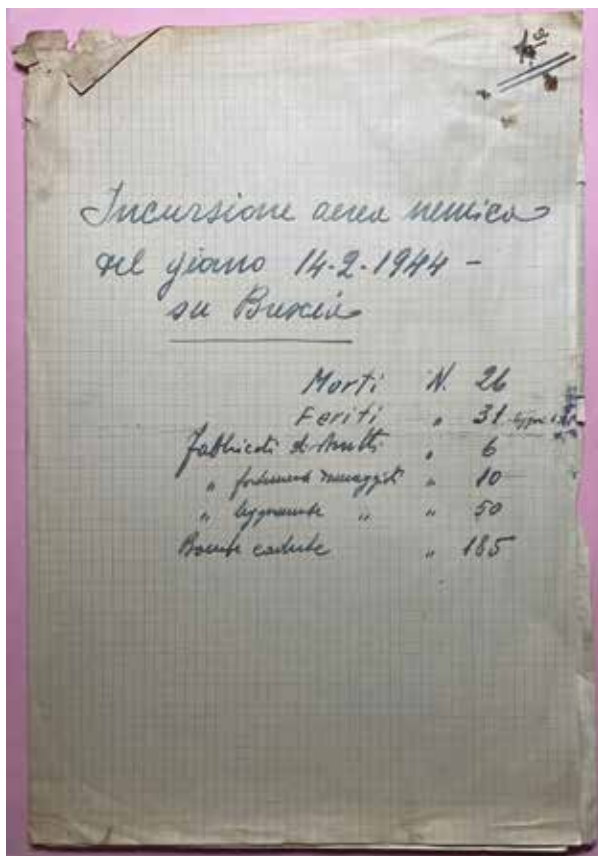 Incursione aerea nemica
del giorno 14-2-1944 -
su Brescia
Morti N. 26
Feriti " 31
Fabbricati distrutti " 6
" fortemente danneggiati " 10
" leggermente " " 50
Bombe cadute " 185